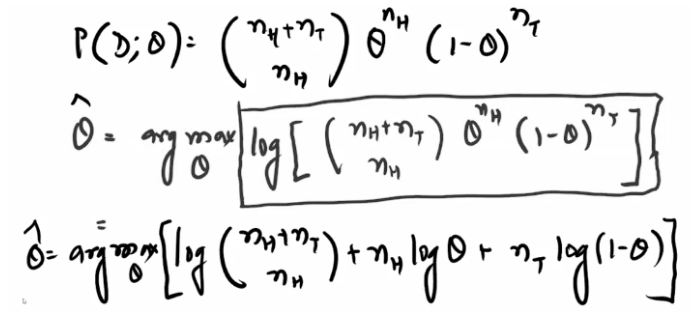 P(D;θ) = (n_H+n_T \choose n_H) θ^{n_H} (1-θ)^{n_T}
θ̂ = arg max_θ log [ (n_H+n_T \choose n_H) θ^{n_H} (1-θ)^{n_T} ]
θ̂ = arg max_θ [ log (n_H+n_T \choose n_H) + n_H log θ + n_T log(1-θ) ]